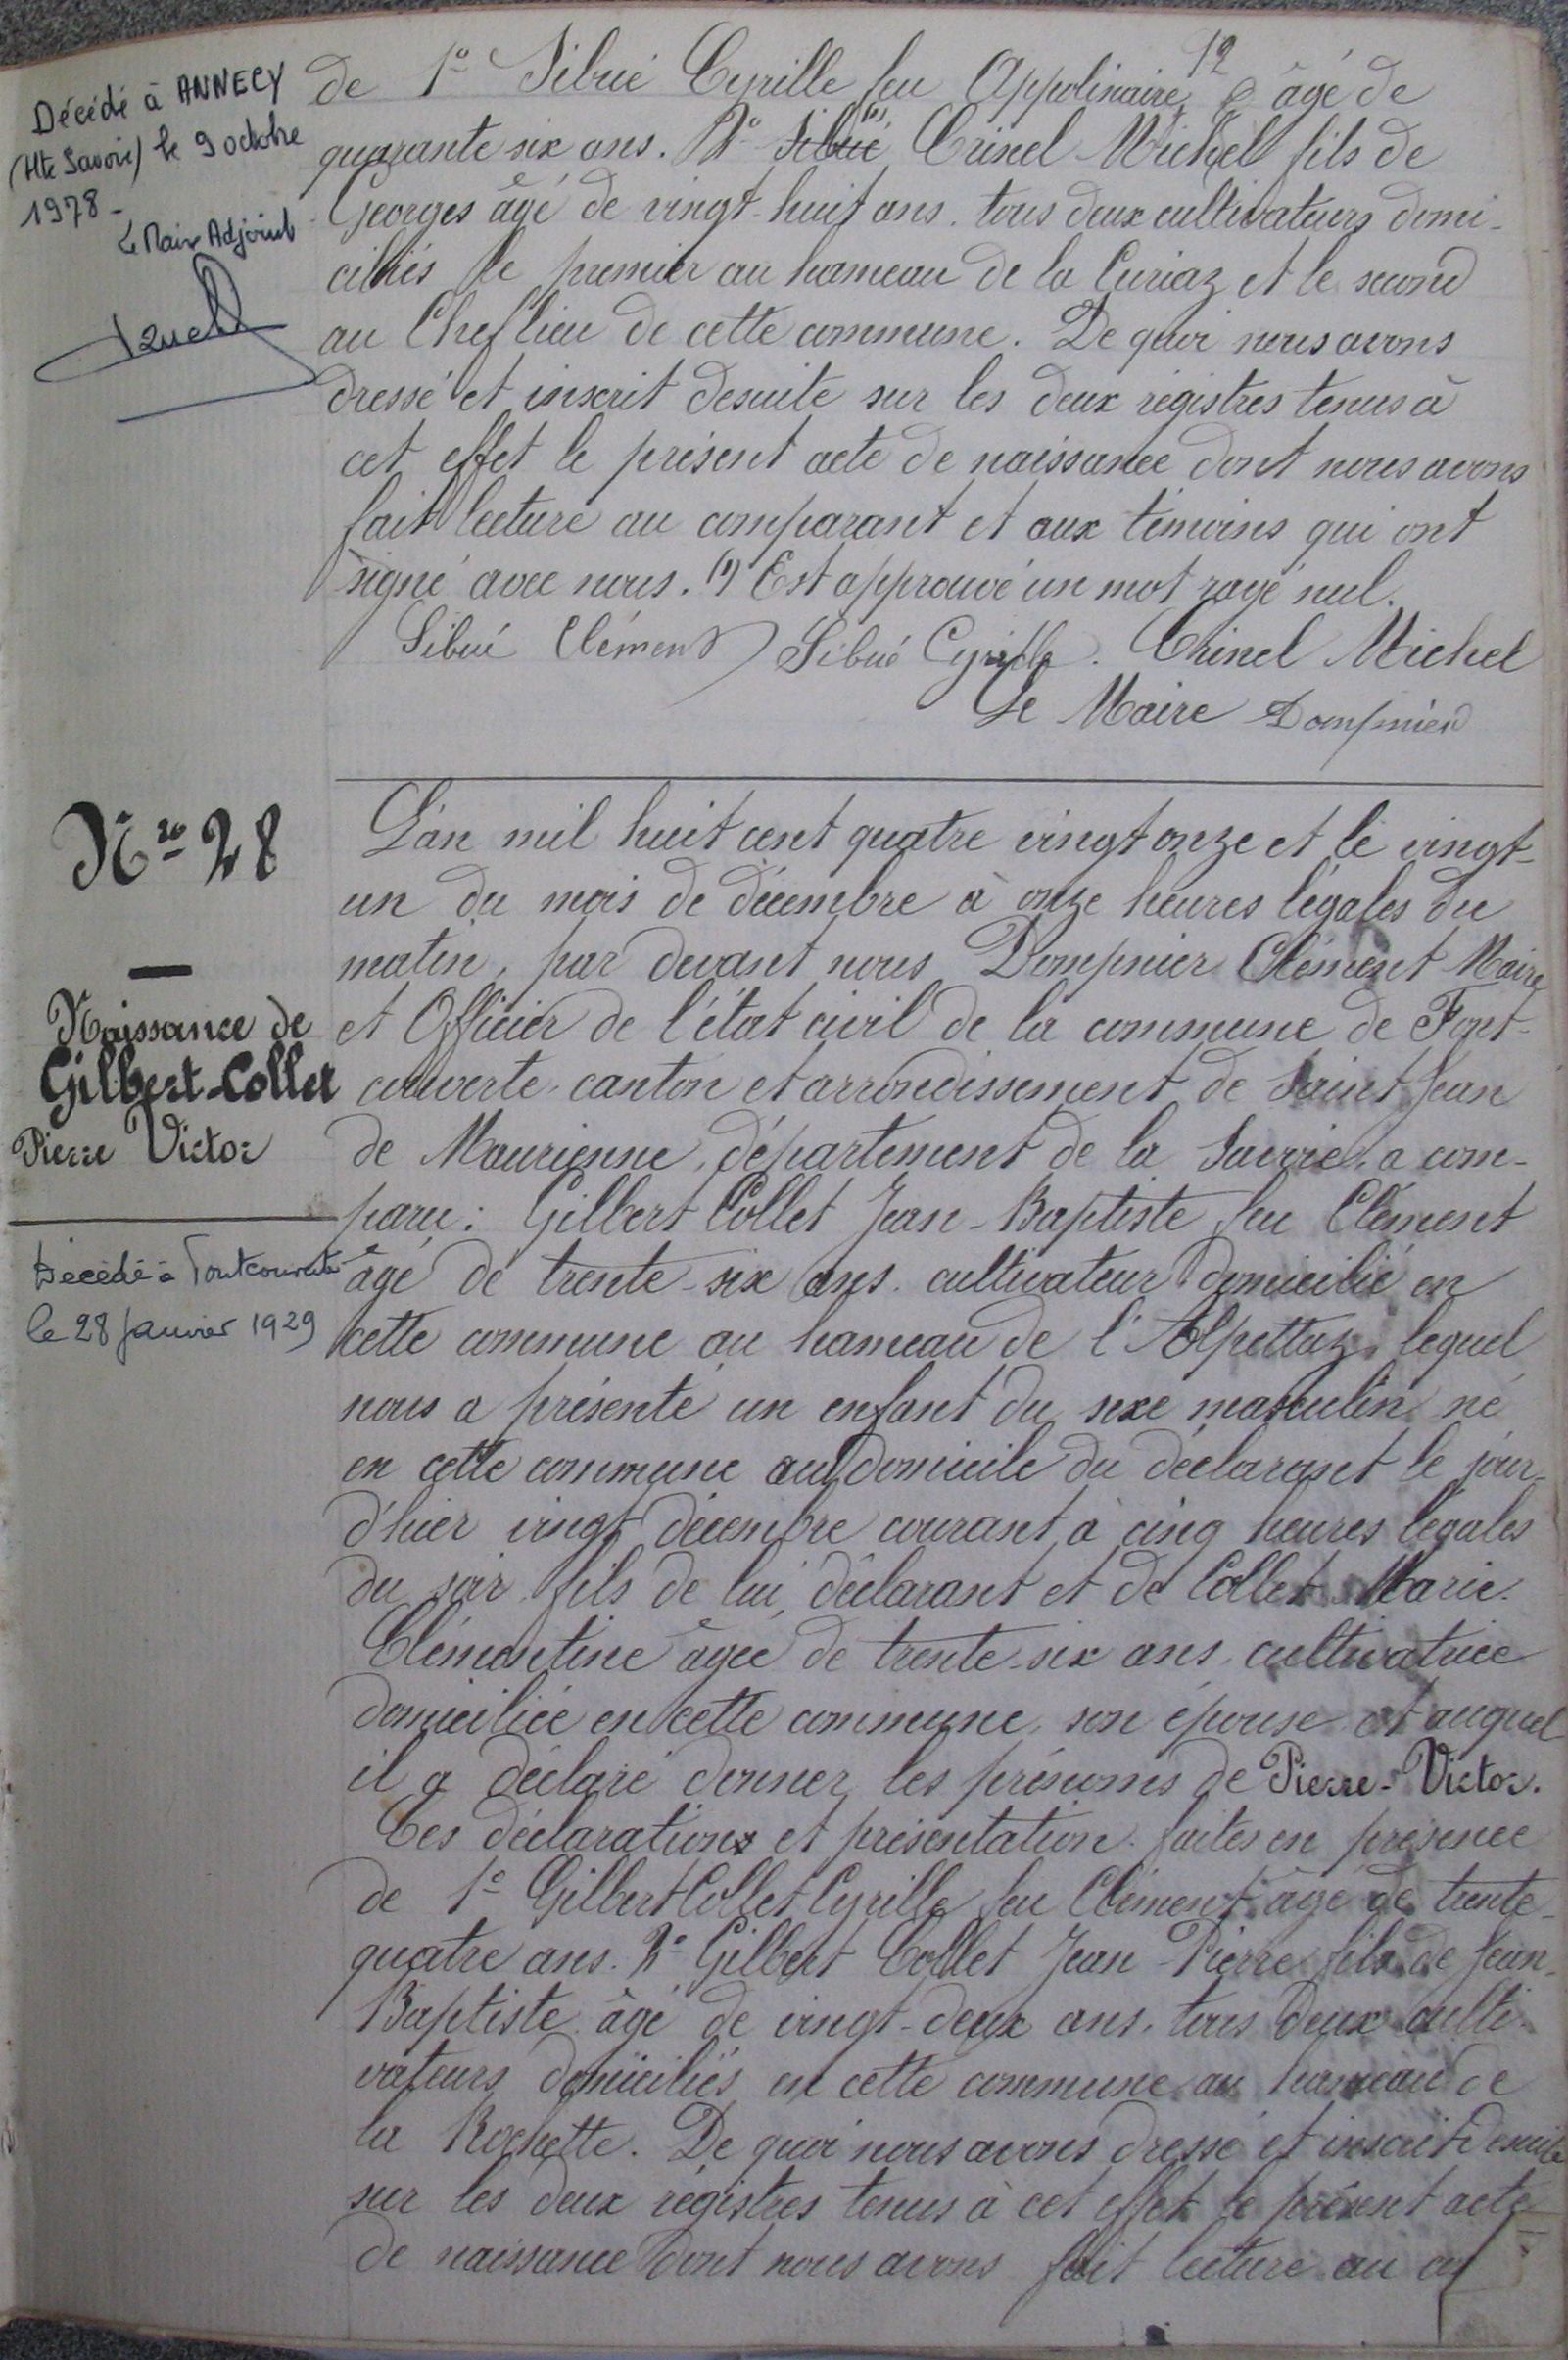 12
Décédé à ANNECY
(Hte Savoie) le 9 octobre
1978 -
Le Maire Adjoint
de 1° Sibué Cyrille feu Appolinaire, âgé de
quarante six ans. 2° Sibué (1) Crinel Michel fils de
Georges âgé de vingt-huit ans. tous deux cultivateurs domi-
ciliés le premier au hameau de la Curiaz et le second
au Chef lieu de cette commune. De quoi nous avons
dressé et inscrit desuite sur les deux registres tenus à
cet effet le présent acte de naissance dont nous avons
fait lecture au comparant et aux témoins qui ont
signé avec nous. (1) Est approuvé un mot rayé nul.
Sibué Clément Sibué Cyrille. Crinel Michel
Le Maire Dompnier
N.ro 28
Naissance de
Gilbert-Collet
Pierre Victor
Décédé à Fontcouverte
le 28 Janvier 1929
L'an mil huit cent quatre vingt onze et le vingt-
un du mois de décembre à onze heures légales du
matin, par devant nous Dompnier Clément Maire
et Officier de l'état civil de la commune de Font-
couverte, canton et arrondissement de Saint Jean
de Maurienne, département de la Savoie, a com-
paru: Gilbert Collet Jean-Baptiste feu Clément
âgé de trente-six ans. cultivateur domicilié en
cette commune au hameau de l'Alpettaz, lequel
nous a présenté un enfant du sexe masculin né
en cette commune au domicile du déclarant le jour-
d'hier vingt décembre courant à cinq heures légales
du soir fils de lui, déclarant et de Collet Marie
Clémentine âgée de trente-six ans, cultivatrice
domiciliée en cette commune, son épouse et auquel
il a déclaré donner les prénoms de Pierre-Victor.
Ces déclarations et présentation faites en présence
de 1° Gilbert Collet Cyrille feu Clément âgé de trente-
quatre ans. 2° Gilbert Collet Jean Pierre fils de Jean-
Baptiste âgé de vingt-deux ans, tous deux culti-
vateurs domiciliés en cette commune au hameau de
la Rochette. De quoi nous avons dressé et inscrit desuite
sur les deux registres tenus à cet effet le présent acte
de naissance dont nous avons fait lecture au